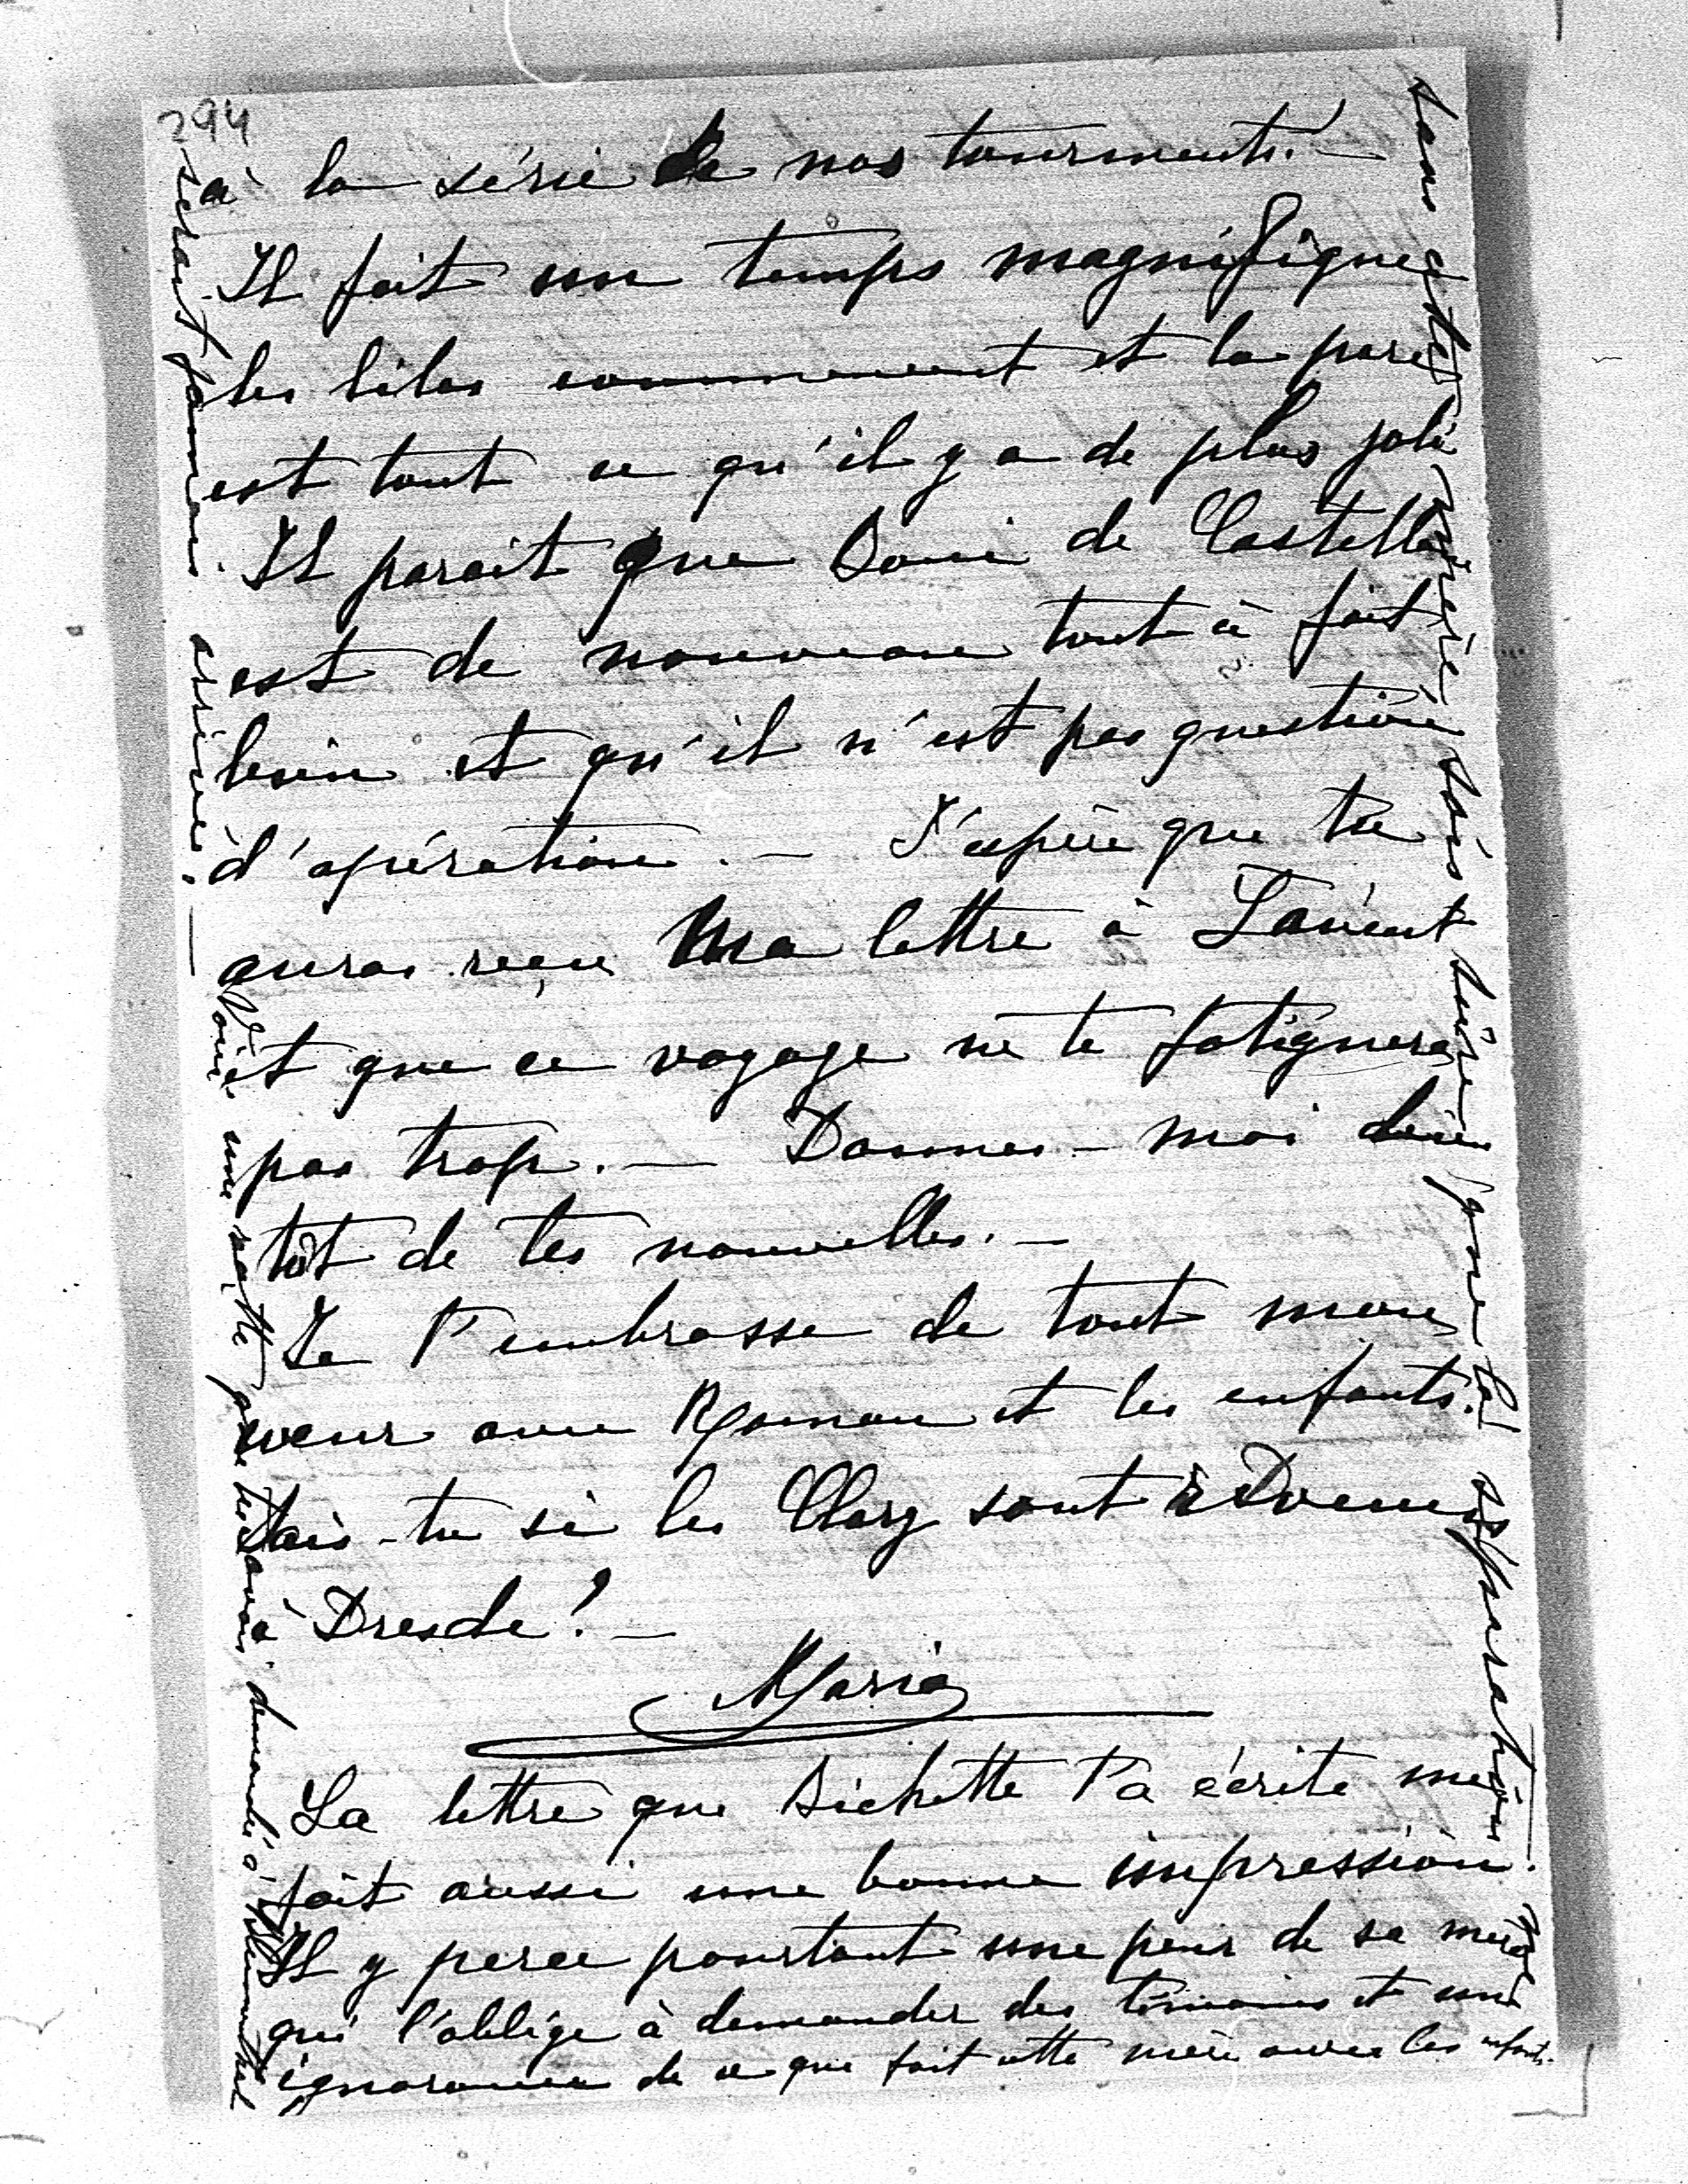 294
à la série de nos tourments! —
Il fait un temps magnifique
les lilas commencent et le parc
est tout ce qu'il y a de plus joli
Il parait que Boni de Castellane
est de nouveau tout à fait
bien et qu'il n'est pas question
d'opération. — J'espère que tu
auras reçu ma lettre à
et que ce voyage ne te fatiguera
pas trop. — Donnes-moi bien
tôt de tes nouvelles. —
Je t'embrasse de tout mon
cœur avec Maman et les enfants.
Sais-tu si les Clary sont
à Dresde? —
Maria
La lettre que Bichette t'a écrite me
fait aussi une bonne impression.
Il y perce pourtant une peur de sa mère
qui l'oblige à demander des témoins et une
ignorance de ce que fait cette mère avec les enfants.
Sans cette misère
pour la séparation.
serait jamais arrivé. —
Voici une patte que tu avais demandée à